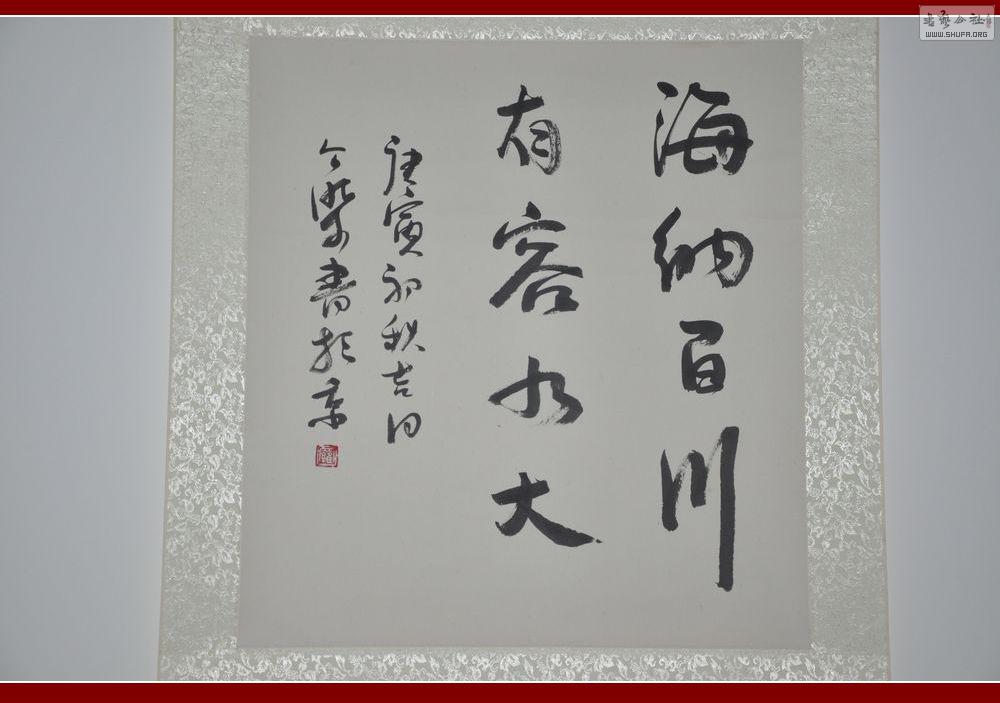 海纳百川
有容乃大
庚寅初秋吉日
书于京
书艺公社
WWW.SHUFA.ORG